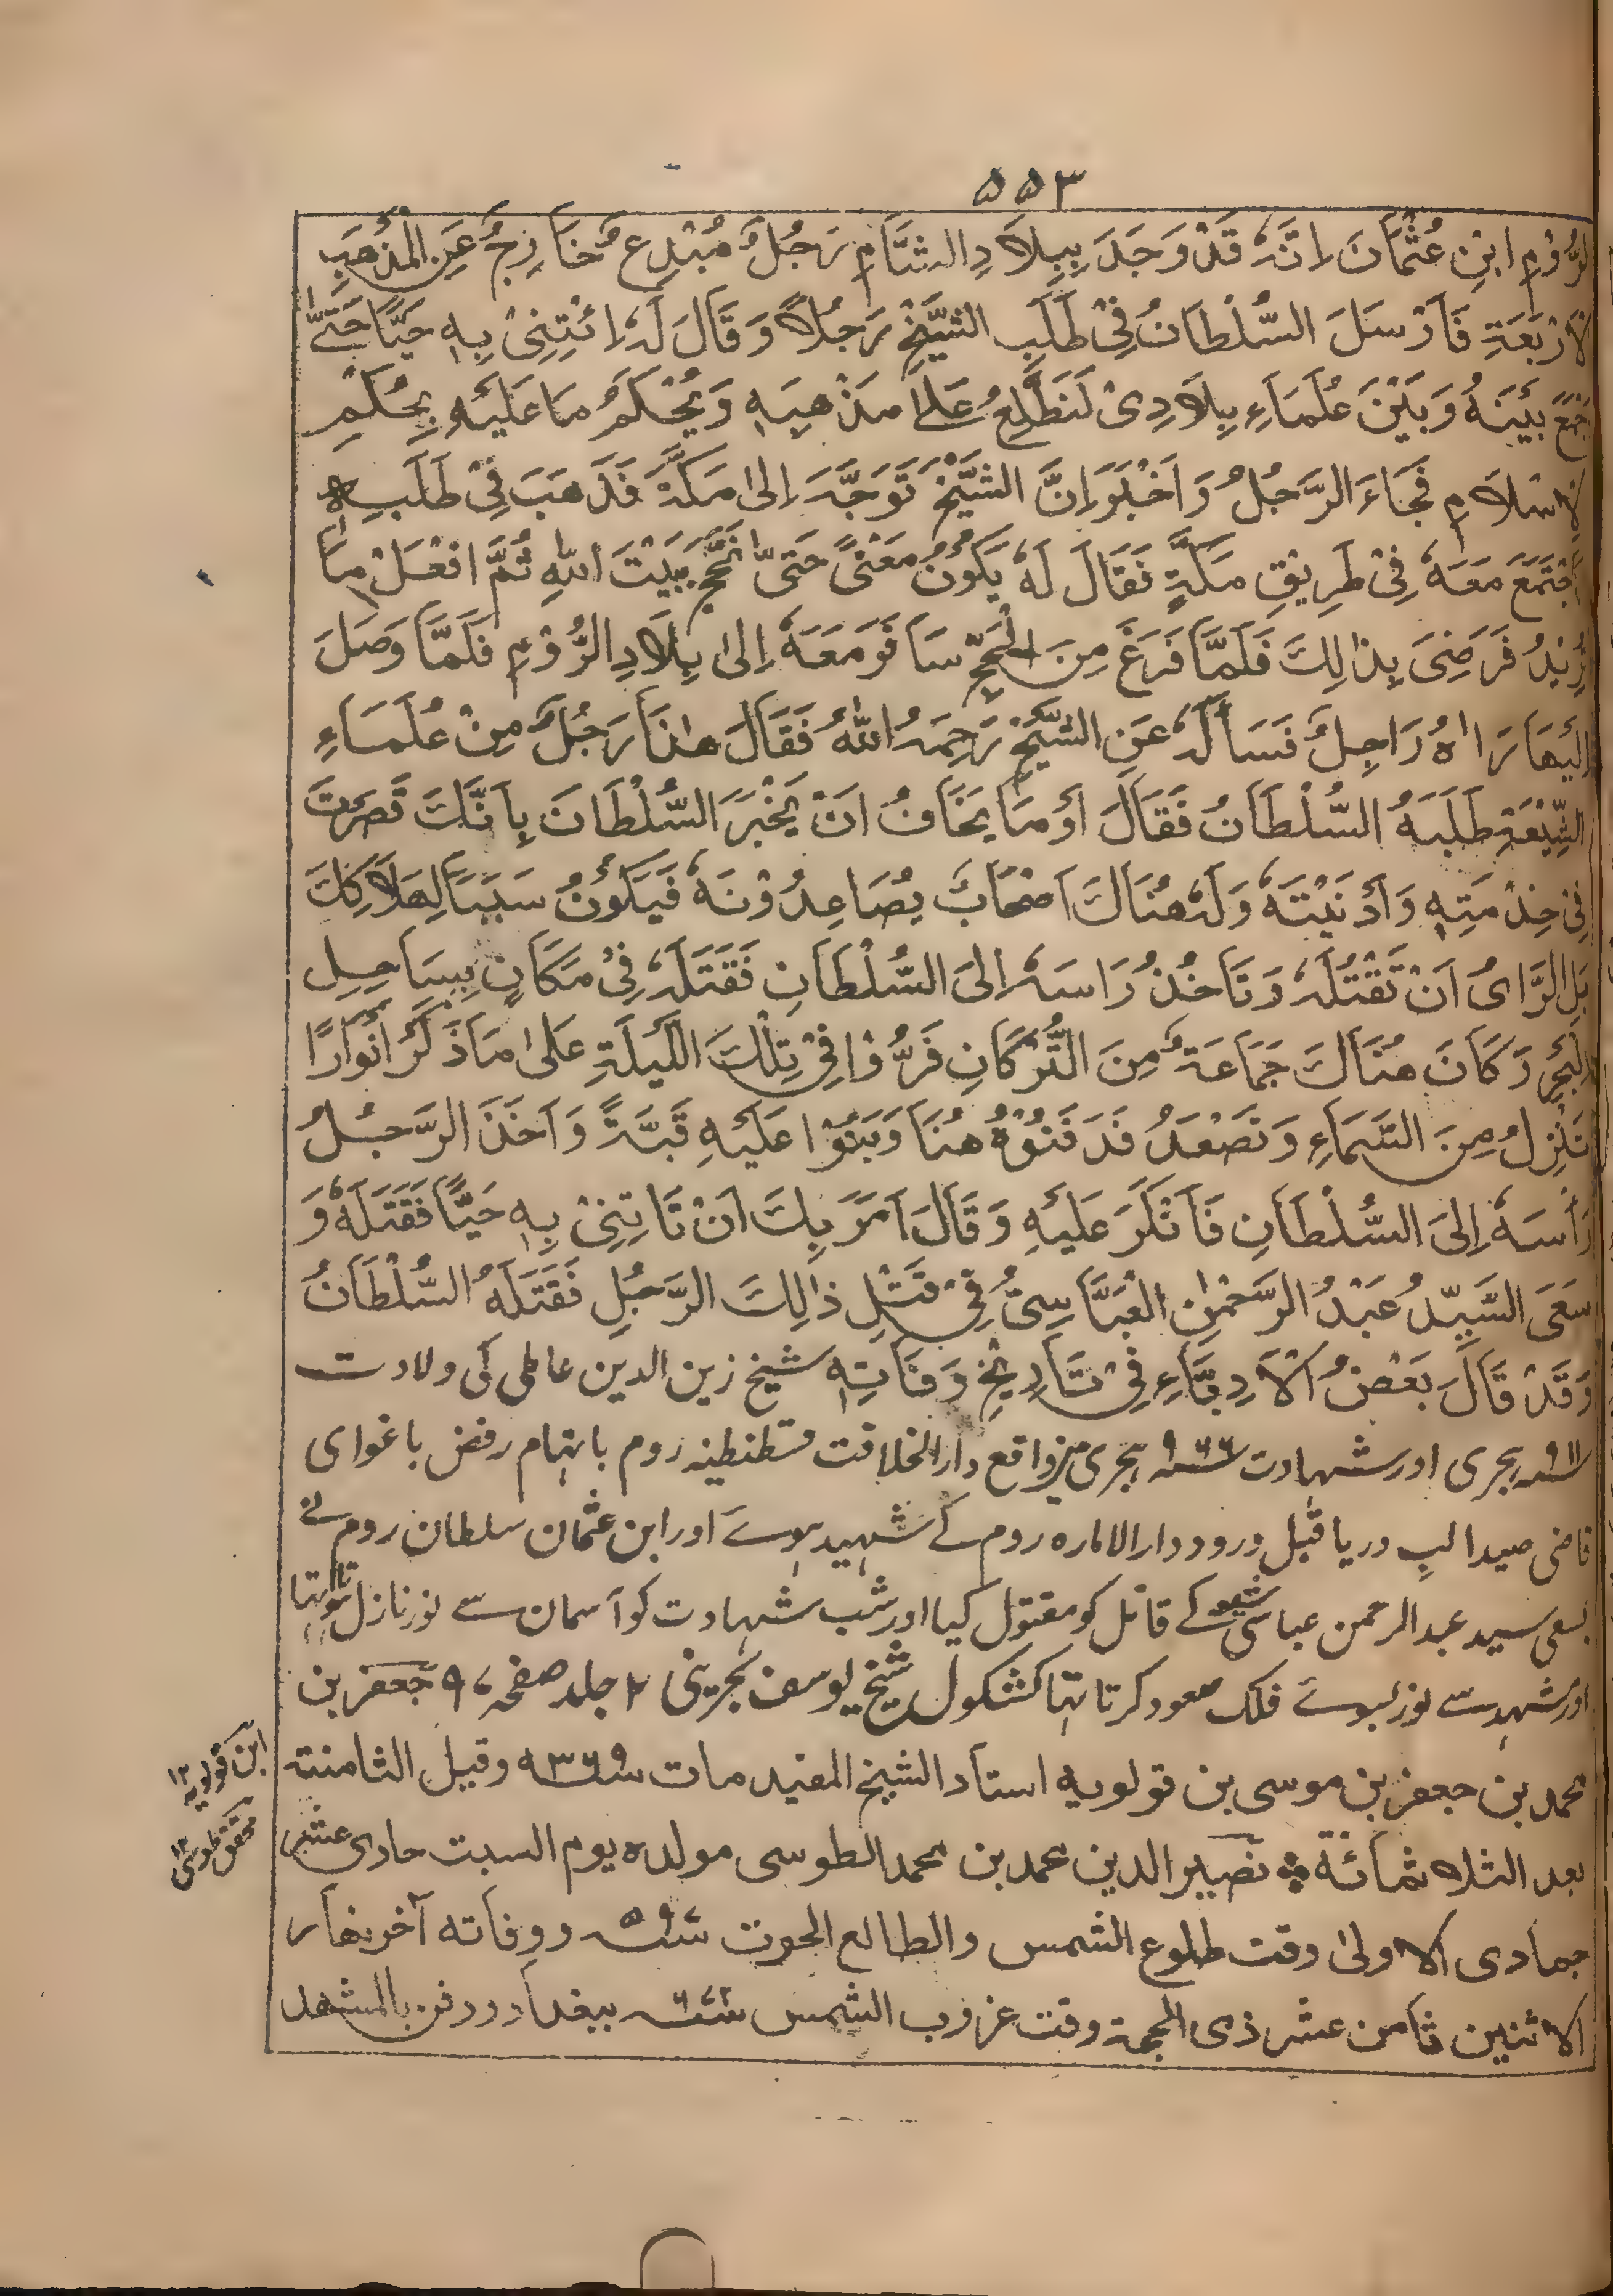 ۵۵۳
الرُّوْمِ ابْنِ عُثْمَانَ اِنَّهٗ قَدْ وَجَدَ بِبِلَادِ الشَّامِ رَجُلٌ مُبْدِعٌ خَارِجٌ عَنِ الْمَذْهَبِ
الْاَرْبَعَةِ فَاَرْسَلَ السُّلْطَانُ فِیْ طَلَبِ الشَّیْخِ رَجُلًا وَ قَالَ لَهٗ اِئْتِنِیْ بِهٖ حَیًّا حَتّٰی
جْمَعَ بَیْنَهُ وَ بَیْنَ عُلَمَاءِ بِلَادِیْ لَنَطَّلِعُ عَلٰی مَذْهَبِهٖ وَ یُحْکَمُ مَا عَلَیْهِ بِحُکْمِ
الْاِسْلَامِ فَجَاءَ الرَّجُلُ وَ اَخْبَرَ اِنَّ الشَّیْخَ تَوَجَّهَ اِلٰی مَکَّةَ فَذَهَبَ فِیْ طَلَبِهٖ
اجْتَمَعَ مَعَهٗ فِیْ طَرِیْقِ مَکَّةٍ فَقَالَ لَهٗ یَکُوْنُ مَعْنًی حَتّٰی نَحُجَّ بَیْتَ اللهِ ثُمَّ افْعَلْ مَا
تُرِیْدُ فَرَضِیَ بِذٰلِكَ فَلَمَّا فَرَغَ مِنَ الْحَجِّ سَافَرَ مَعَهٗ اِلٰی بِلَادِ الرُّوْمِ فَلَمَّا وَصَلَ
اِلَیْهَا رَاٰهُ رَاجِلٌ فَسَاَلَهٗ عَنِ الشَّیْخِ رَحِمَهُ اللهُ فَقَالَ هٰذَا رَجُلٌ مِنْ عُلَمَاءِ
الشِّیْعَةِ طَلَبَهُ السُّلْطَانُ فَقَالَ اَوَ مَا یَخَافُ اَنْ یُخْبَرَ السُّلْطَانَ بِاَنَّكَ قَصَرْتَ
فِیْ خِدْمَتِهٖ وَ اَذَنَیْتَهٗ وَ لَهٗ هُنَاكَ اَصْحَابٌ یُصَاعِدُوْنَهٗ فَیَکُوْنُ سَبَبًا لِهَلَاکِكَ
بَلِ الرَّاْیُ اَنْ تَقْتُلَهٗ وَ تَاْخُذُ رَاسَهٗ اِلَی السُّلْطَانِ فَقَتَلَهٗ فِیْ مَکَانٍ بِسَاحِلِ
الْبَحْرِ وَ کَانَ هُنَاكَ جَمَاعَةٌ مِنَ التُّرْکَانِ فَرَّوْا فِیْ تِلْكَ اللَّیْلَةِ عَلٰی مَا ذَکَرَ اَنْوَارًا
تَنْزِلُ مِنَ السَّمَاءِ وَ تَصْعَدُ فَدَفَنُوْهُ هُنَا وَ بَنَوْا عَلَیْهِ قُبَّةً وَ اَخَذَ الرَّجُلُ
رَاْسَهٗ اِلَی السُّلْطَانِ فَاَنْکَرَ عَلَیْهِ وَ قَالَ اَمَرَ بِكَ اَنْ تَاتِنِیْ بِهٖ حَیًّا فَقَتَلَهٗ وَ
سَعَی السَّیِّدُ عَبْدُ الرَّحْمٰنِ الْعَبَّاسِیُّ فِیْ قَتْلِ ذٰلِكَ الرَّجُلِ فَقَتَلَهُ السُّلْطَانُ
وَ قَدْ قَالَ بَعْضُ الْاَدِبَّاءِ فِیْ تَارِیْخِ وَفَاتِهٖ شیخ زین الدین عاملی کی ولادت
۹۱۱ہ ہجری اور شہادت ۹۶۶ہ ہجری میں واقع دارالخلافت قسطنطینہ روم باتہام رفض باغوای
قاضی صیدا لبِ دریا قبل ورود دارالامارہ روم کے شہید ہوے اور ابن عثمان سلطان روم نے
بسعی سید عبد الرحمن عباسی شیعی کے قاتل کو مقتول کیا اور شب شہادت کو آسمان سے نور نازل ہوتا تہا
اور مشہد سے نور بسوے فلک صعود کرتا تہا کشکول شیخ یوسف بحرینی ۲ جلد صفحہ ۹۷ جعفر بن
محمد بن جعفر بن موسی بن قولویه استاد الشیخ المفید مات سنه ۳۶۹ وقیل الثامنة
بعد الثلاثمائة ٭ نصیر الدین محمد بن محمد الطوسی مولده یوم السبت حادی عشر
جمادی الاولیٰ وقت طلوع الشمس والطالع الحوت سنه ۵۹۷ ووفاته آخر نهار
الاثنین ثامن عشر ذی الحجة وقت غروب الشمس سنه ۶۷۲ ببغداد ودفن بالمشهد
ابن قولویہ ۱۲
محقق طوسی ۱۲